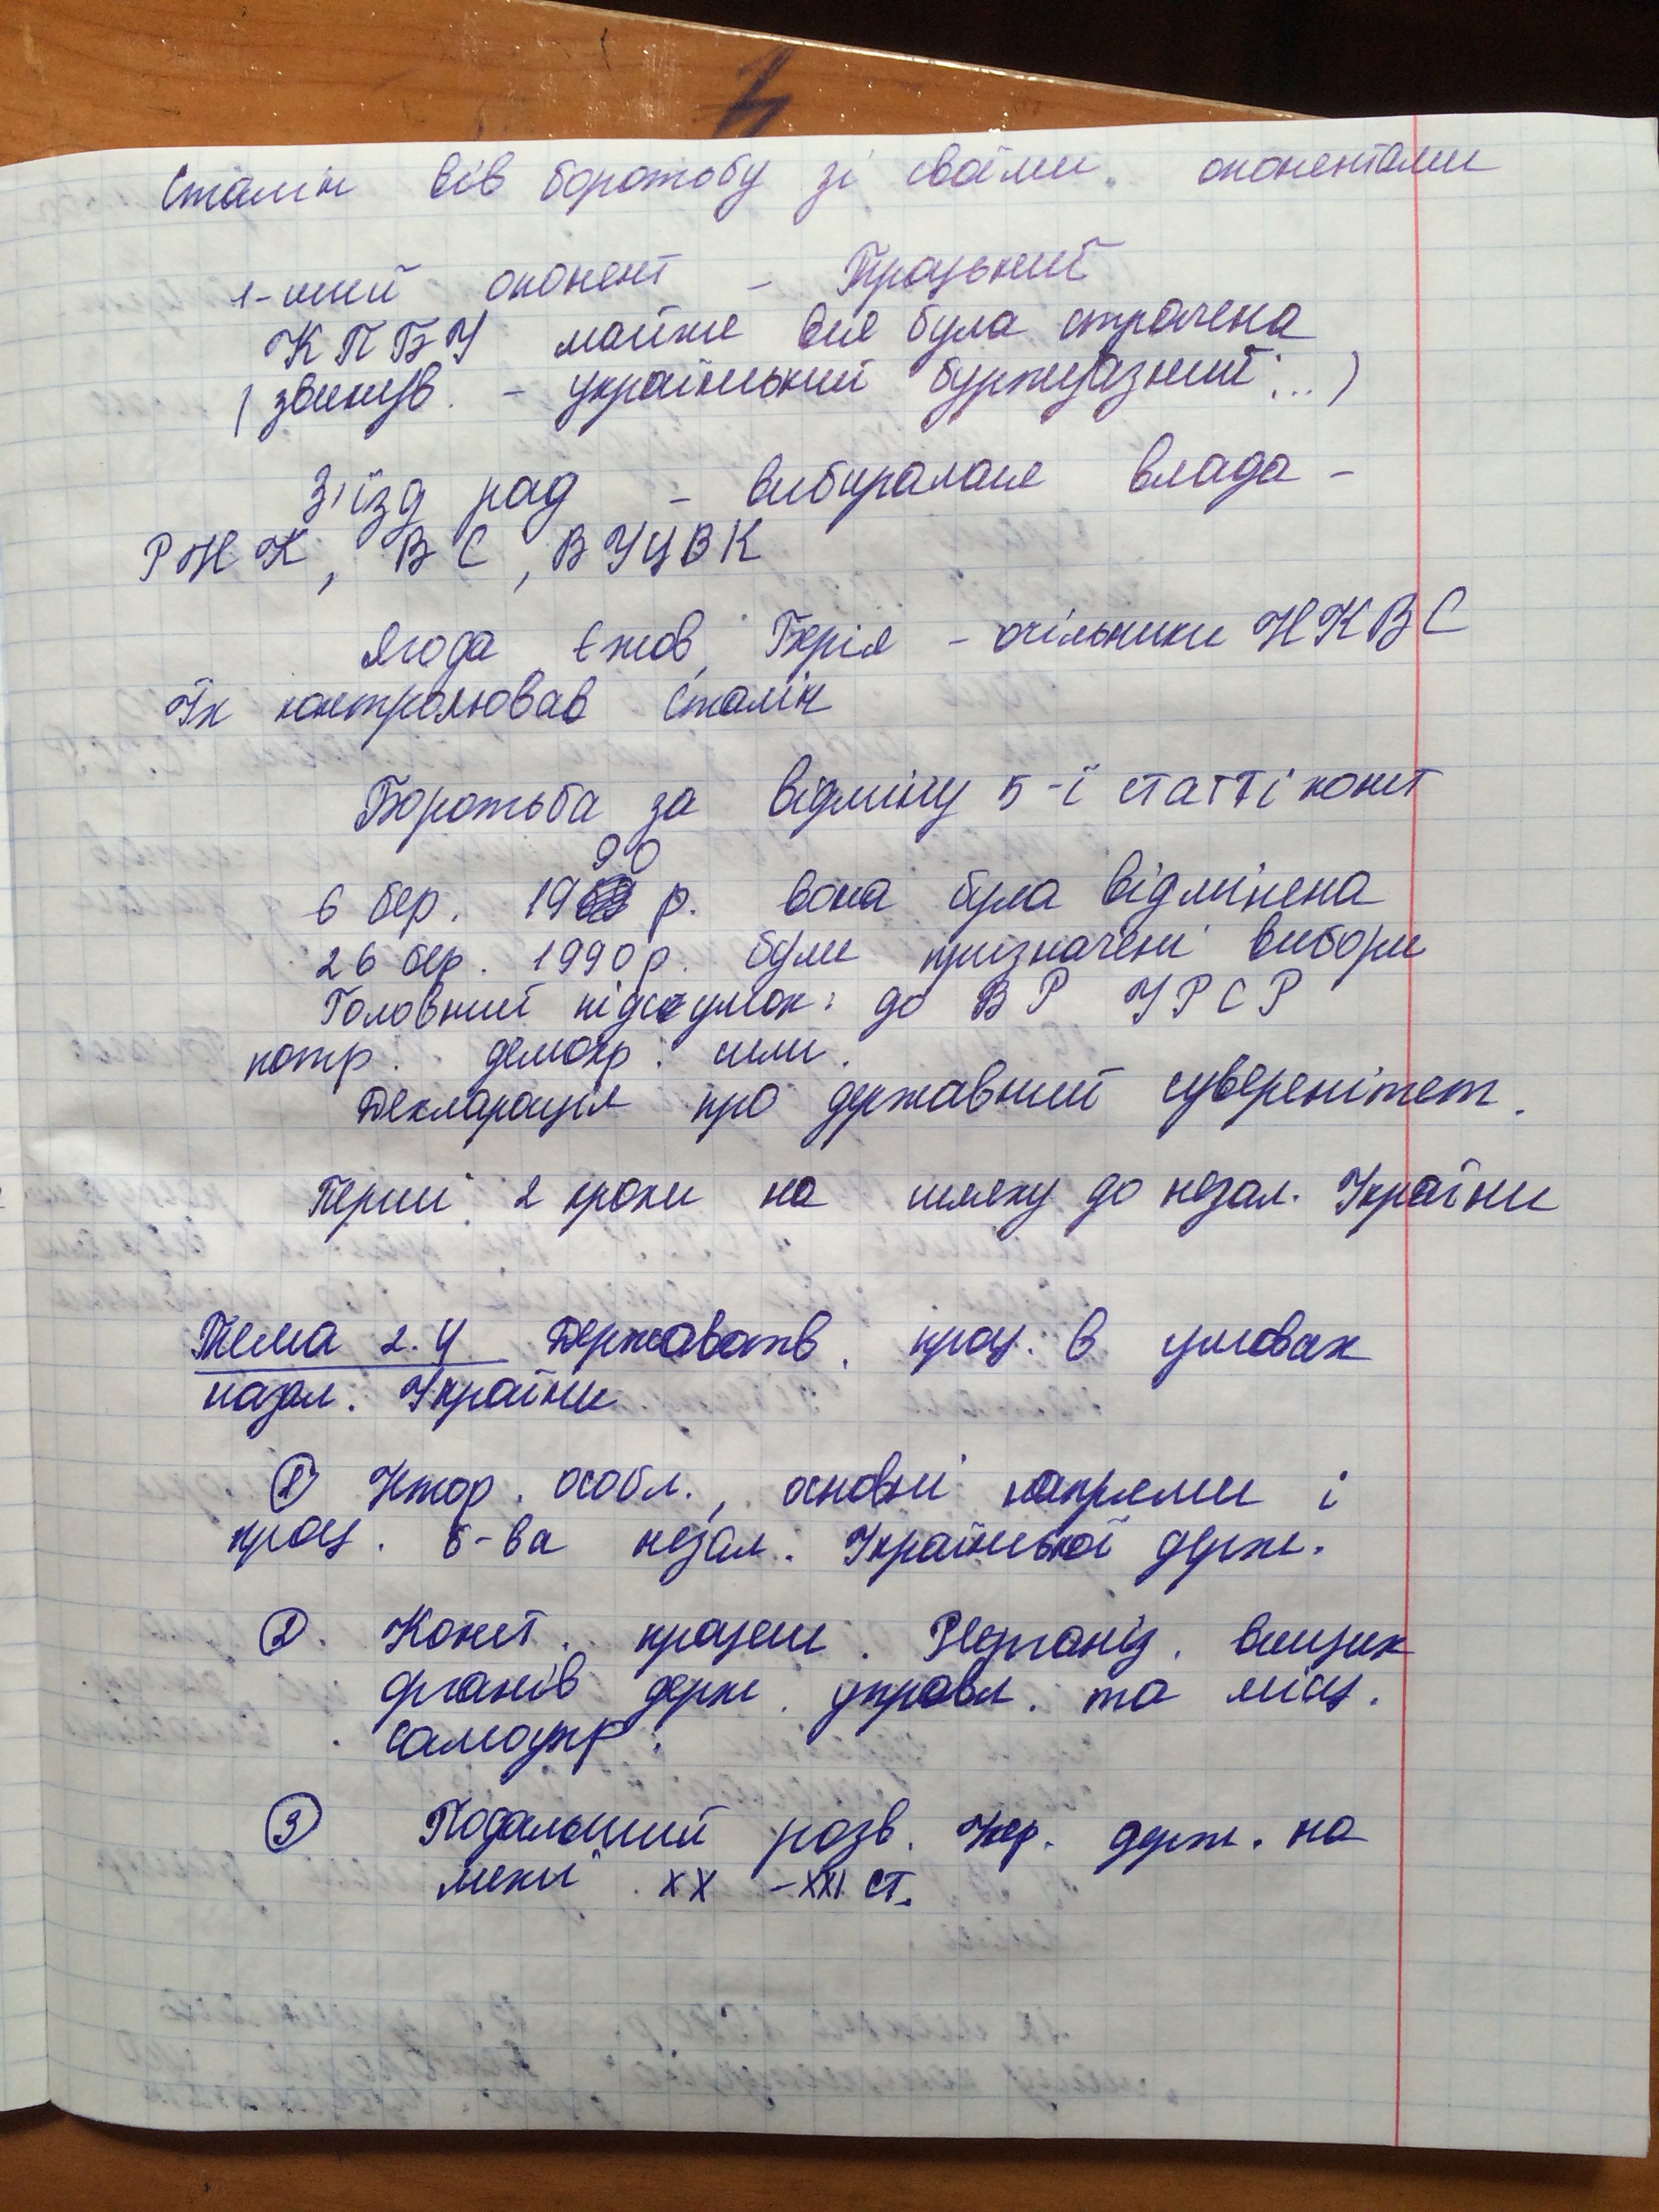 Сталін вів боротобу зі своїми опонентами
1-ший опонент - Троцький
КПБУ майже вся була страчена
(звинув. - український буржуазний...)
З'їзд рад - вибиралася влада -
РНК, ВС, ВУЦВК
Ягода, Єжов, Берія - очільники НКВС
Їх контролював Сталін
Боротьба за відміну 5-ї статті конст
90
6 бер. 19 р. вона була відмінена
26 бер. 1990 р. були призначені вибори
Головний підсумок: до ВР УРСР
потр. демокр. сили.
Декларація про державний суверенітет.
Перші 2 кроки на шляху до незал. України
Тема 2.4 Державотв. проц. в умовах
незал. України
① Істор. особл., основні напрями і
проц. б-ва незал. Української держ.
②. Конст. процеси. Реорганіз. вищих
органів держ. управл. та місц.
самоупр.
③ Подальший розв. Укр. держ. на
межі XX - XXI ст.